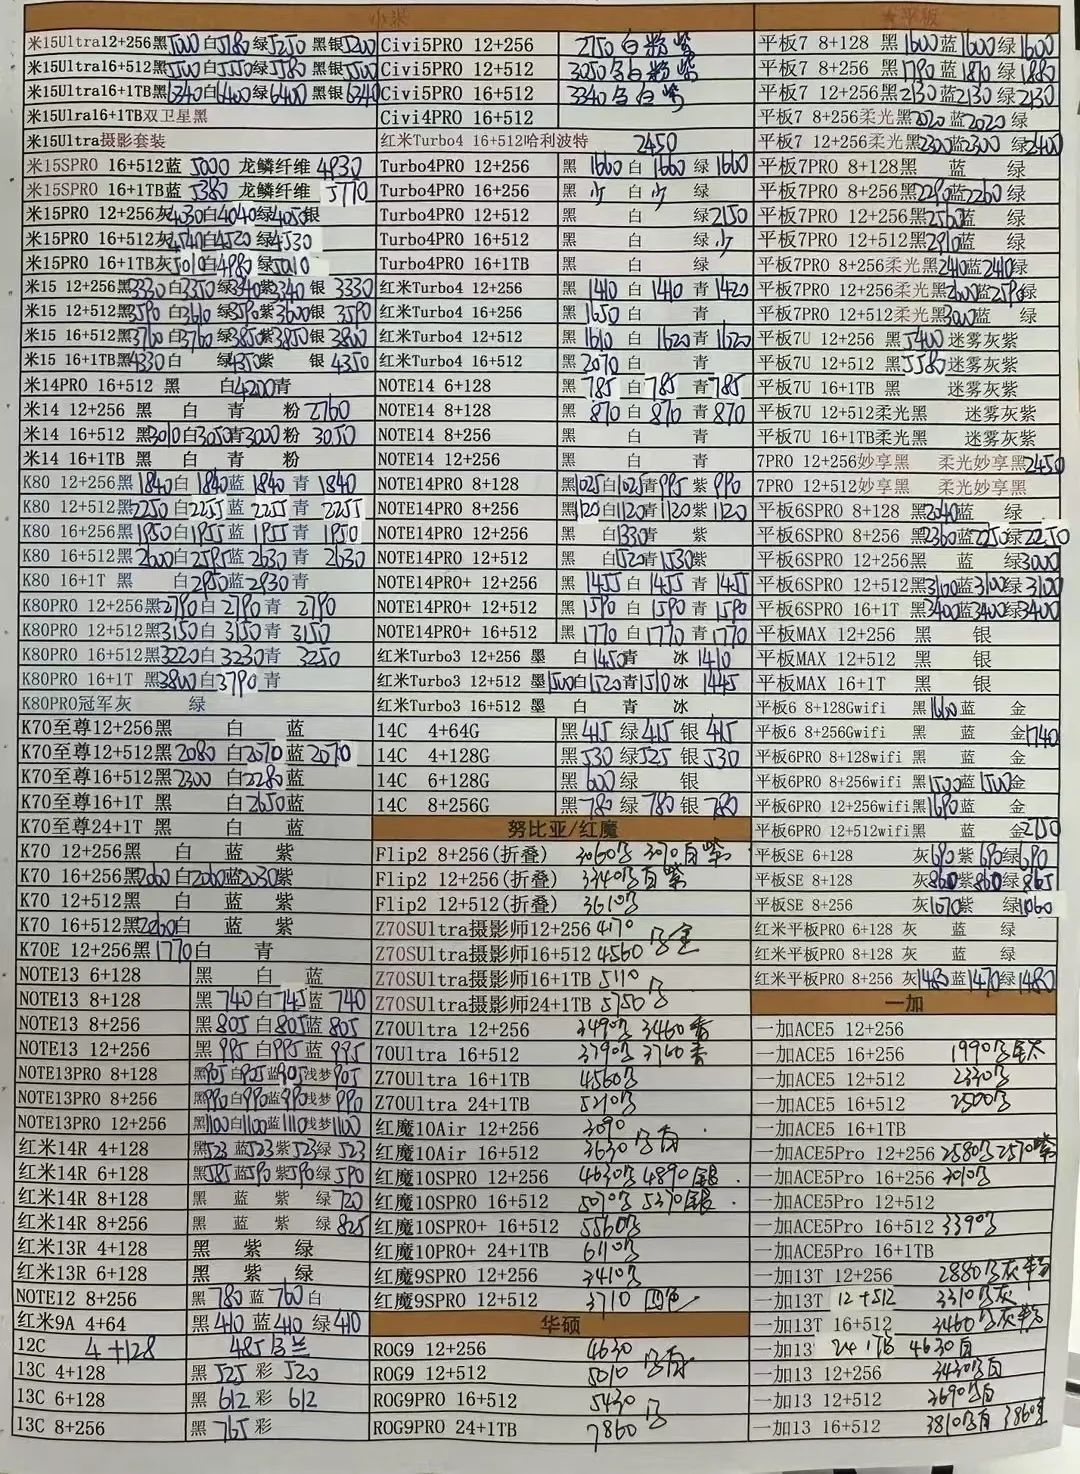 小米
米15Ultra12+256黑5000白5180绿5250 黑银5200
米15Ultra16+512黑5500白5550绿5580 黑银5500
米15Ultra16+1TB黑6340白6400绿6400 黑银6340
米15Ulra16+1TB双卫星黑
米15Ultra摄影套装
米15SPRO 16+512蓝 5000 龙鳞纤维 4930
米15SPRO 16+1TB蓝 5380 龙鳞纤维 5770
米15PRO 12+256灰4030白4040绿4050银
米15PRO 16+512灰4540白4520 绿4530
米15PRO 16+1TB灰5010白4980 绿5010
米15 12+256黑3330 白3350 绿3340紫3340 银 3330
米15 12+512黑3590 白3610 绿3590紫3600银 3590
米15 16+512黑3760 白3760 绿3850紫3850银 3800
米15 16+1TB黑4330白 绿4350紫 银 4350
米14PRO 16+512 黑 白4200青
米14 12+256 黑 白 青 粉 2760
米14 16+512 黑3010白3050青3000 粉 3050
米14 16+1TB 黑 白 青 粉
K80 12+256黑 1840白 1840蓝 1840 青 1840
K80 12+512黑2250 白2255 蓝 2255 青 2255
K80 16+256黑1950 白1955 蓝 1955 青 1950
K80 16+512黑2600白2595蓝2630 青 2630
K80 16+1T 黑 白2950蓝2930青
K80PRO 12+256黑2790白 2790 青 2790
K80PRO 12+512黑3150白 3150 青 3150
K80PRO 16+512黑3220白 3230青 3250
K80PRO 16+1T 黑3800白3790 青
K80PRO冠军灰 绿
K70至尊12+256黑 白 蓝
K70至尊12+512黑2080 白2070 蓝2070
K70至尊16+512黑2300 白2280蓝
K70至尊16+1T 黑 白2650蓝
K70至尊24+1T 黑 白 蓝
K70 12+256黑 白 蓝 紫
K70 16+256黑2060白2060蓝2030紫
K70 12+512黑 白 蓝 紫
K70 16+512黑2260白 蓝 紫
K70E 12+256黑1770白 青
NOTE13 6+128 黑 白 蓝
NOTE13 8+128 黑740白745蓝740
NOTE13 8+256 黑805白805蓝805
NOTE13 12+256 黑995白995蓝995
NOTE13PRO 8+128 黑905白905蓝905浅梦905
NOTE13PRO 8+256 黑990白990蓝990浅梦990
NOTE13PRO 12+256 黑1100白1100蓝1110浅梦1100
红米14R 4+128 黑523 蓝523 紫523绿 523
红米14R 6+128 黑585蓝590 紫590绿 590
红米14R 8+128 黑 蓝 紫 绿 720
红米14R 8+256 黑 蓝 紫 绿 825
红米13R 4+128 黑 紫 绿
红米13R 6+128 黑 紫 绿
NOTE12 8+256 黑 780 蓝 760 白
红米9A 4+64 黑410 蓝410 绿410
12C 4+128 485 兰
13C 4+128 黑 525 彩 520
13C 6+128 黑 612 彩 612
13C 8+256 黑 765 彩
Civi5PRO 12+256 2750 白粉紫
Civi5PRO 12+512 3050 白粉紫
Civi5PRO 16+512 3340 白紫
Civi4PRO 16+512
红米Turbo4 16+512哈利波特 2450
Turbo4PRO 12+256 黑 1660 白 1660 绿 1660
Turbo4PRO 16+256 黑 少 白 少 绿
Turbo4PRO 12+512 黑 白 绿2150
Turbo4PRO 16+512 黑 白 绿少
Turbo4PRO 16+1TB 黑 白 绿
红米Turbo4 12+256 黑 1410 白 1410 青 1420
红米Turbo4 16+256 黑 1650 白 青
红米Turbo4 12+512 黑 1610 白 1620 青 1620
红米Turbo4 16+512 黑 2070 白 青
NOTE14 6+128 黑 785 白785 青785
NOTE14 8+128 黑 870 白 870 青 870
NOTE14 8+256 黑 白 青
NOTE14 12+256 黑 白 青
NOTE14PRO 8+128 黑1025白1025青995 紫 990
NOTE14PRO 8+256 黑1120白1120青1120紫1120
NOTE14PRO 12+256 黑 白1330青 紫
NOTE14PRO 12+512 黑 白1520青1530紫
NOTE14PRO+ 12+256 黑 1455 白 1455 青 1455
NOTE14PRO+ 12+512 黑 1590 白 1590 青 1590
NOTE14PRO+ 16+512 黑 1770 白1770 青1770
红米Turbo3 12+256 墨 白1450青 冰 1410
红米Turbo3 12+512 墨1500白1520青1510冰 1445
红米Turbo3 16+512 墨 白 青 冰
14C 4+64G 黑415 绿415 银 415
14C 4+128G 黑530 绿525 银 530
14C 6+128G 黑600绿 银
14C 8+256G 黑780 绿 780 银 780
努比亚/红魔
Flip2 8+256(折叠) 3060 3090 白紫
Flip2 12+256(折叠) 3340 白紫
Flip2 12+512(折叠) 3610
Z70SUltra摄影师12+256 4170
Z70SUltra摄影师16+512 4560
Z70SUltra摄影师16+1TB 5110
Z70SUltra摄影师24+1TB 5750
Z70Ultra 12+256 3490 3460
70Ultra 16+512 3790 3760
Z70Ultra 16+1TB 4560
Z70Ultra 24+1TB 5210
红魔10Air 12+256 3090
红魔10Air 16+512 3630
红魔10SPRO 12+256 4630 4890 银
红魔10SPRO 16+512 5070 5370 银
红魔10SPRO+ 16+512 5560
红魔10PRO+ 24+1TB 6110
红魔9SPRO 12+256 3410
红魔9SPRO 12+512 3710 四色
华硕
ROG9 12+256 4630
ROG9 12+512 5010
ROG9PRO 16+512 5430
ROG9PRO 24+1TB 7860
★平板
平板7 8+128 黑1600蓝1600绿1600
平板7 8+256 黑1790 蓝1870 绿1880
平板7 12+256黑2130蓝2130 绿2130
平板7 8+256柔光黑2020蓝2020 绿
平板7 12+256柔光黑2300蓝2300 绿2400
平板7PRO 8+128黑 蓝 绿
平板7PRO 8+256黑2290蓝2260绿
平板7PRO 12+256黑2560蓝 绿
平板7PRO 12+512黑2910蓝 绿
平板7PRO 8+256柔光黑2410蓝2410绿
平板7PRO 12+256柔光黑2600蓝2590绿
平板7PRO 12+512柔光黑3000蓝 绿
平板7U 12+256 黑5400 迷雾灰紫
平板7U 12+512 黑5580迷雾灰紫
平板7U 16+1TB 黑 迷雾灰紫
平板7U 12+512柔光黑 迷雾灰紫
平板7U 16+1TB柔光黑 迷雾灰紫
7PRO 12+256妙享黑 柔光妙享黑2450
7PRO 12+512妙享黑 柔光妙享黑
平板6SPRO 8+128 黑2040蓝 绿
平板6SPRO 8+256 黑2360蓝2250绿2250
平板6SPRO 12+256 黑 蓝 绿3000
平板6SPRO 12+512黑3100蓝3100绿3100
平板6SPRO 16+1T 黑3400蓝3400绿3400
平板MAX 12+256 黑 银
平板MAX 12+512 黑 银
平板MAX 16+1T 黑 银
平板6 8+128Gwifi 黑1650蓝 金
平板6 8+256Gwifi 黑 蓝 金1740
平板6PRO 8+128wifi 黑 蓝 金
平板6PRO 8+256wifi 黑1500蓝1500金
平板6PRO 12+256wifi黑1690蓝 金
平板6PRO 12+512wifi黑 蓝 金2150
平板SE 6+128 灰690紫690绿690
平板SE 8+128 灰860紫860绿865
平板SE 8+256 灰1070紫 绿1060
红米平板PRO 6+128 灰 蓝 绿
红米平板PRO 8+128 灰 蓝 绿
红米平板PRO 8+256 灰1480蓝1470绿1480
一加
一加ACE5 12+256
一加ACE5 16+256 1990
一加ACE5 12+512 2330
一加ACE5 16+512 2500
一加ACE5 16+1TB
一加ACE5Pro 12+256 2580 2510 紫
一加ACE5Pro 16+256 3010
一加ACE5Pro 12+512
一加ACE5Pro 16+512 3390
一加ACE5Pro 16+1TB
一加13T 12+256 2880 灰粉
一加13T 12+512 3310 灰
一加13T 16+512 3460 灰粉
一加13 24+1TB 4630 白
一加13 12+256 3430 白
一加13 12+512 3690 白
一加13 16+512 3810 白 3860